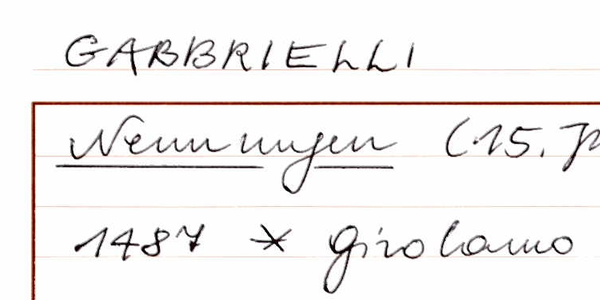 GABBRIELLI
Nennungen (15. J
1487 * Girolamo